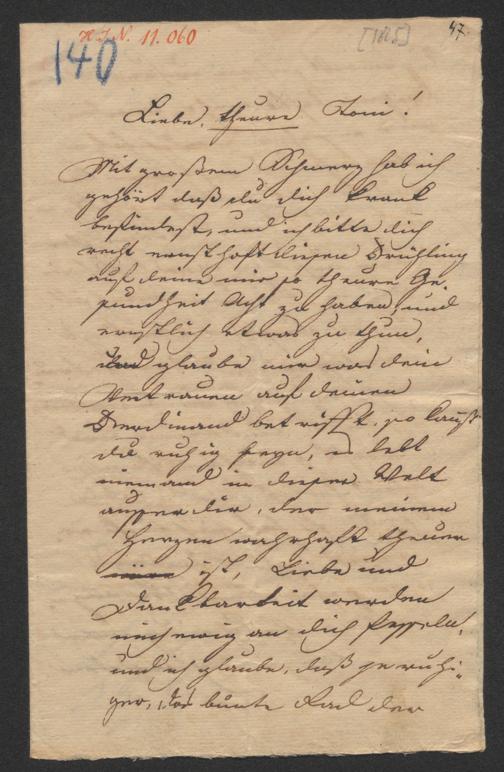 H.I.N. 11.060
140
[1825]
47.
Liebe, theure Toni!
Mit großem Schmerz hab ich
gehört daß du dich krank
befindest, und ich bitte dich
recht ernsthaft diesen Frühling
auf deine mir so theure Ge-
sundheit Acht zu haben, und
ernstlich etwas zu thun,
und glaube mir was dein
Vertrauen auf deinen
Ferdinand betrifft, so kannst
du ruhig seyn, es lebt
niemand in dieser Welt
ausser dir, der meinem
Herzen wahrhaft theuer
ist, Liebe und
Dankbarkeit werden
mich ewig an dich fesseln,
und ich glaube, daß je ruhi-
ger, das bunte Rad der